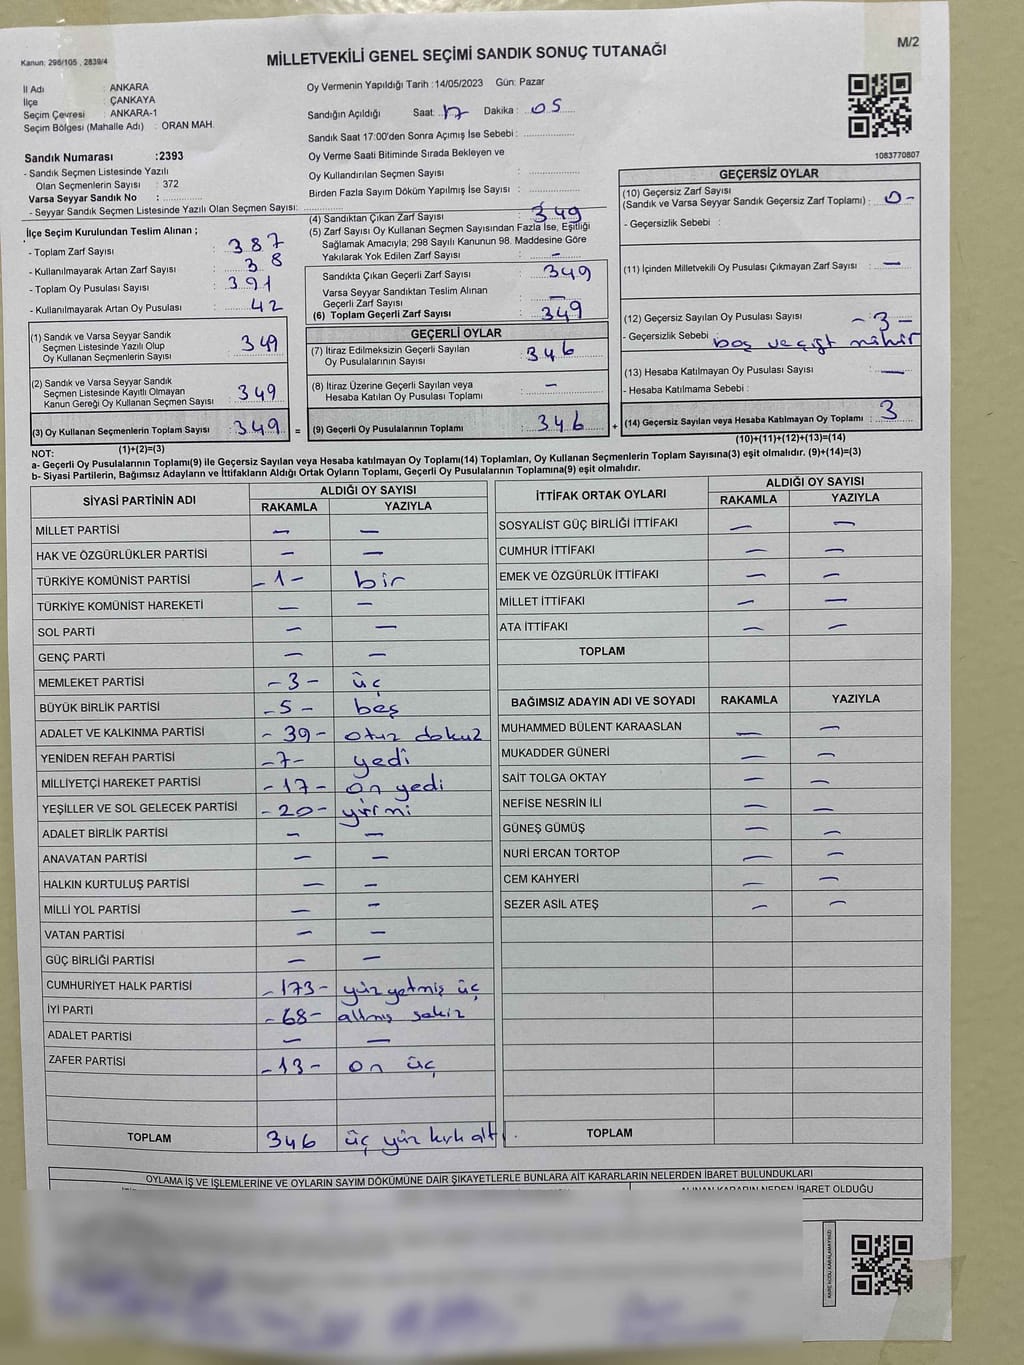 Kanun: 298/105 , 2839/4
MİLLETVEKİLİ GENEL SEÇİMİ SANDIK SONUÇ TUTANAĞI
M/2
İl Adı : ANKARA
İlçe : ÇANKAYA
Seçim Çevresi : ANKARA-1
Seçim Bölgesi (Mahalle Adı) : ORAN MAH.
Sandık Numarası :2393
- Sandık Seçmen Listesinde Yazılı
Olan Seçmenlerin Sayısı : 372
Varsa Seyyar Sandık No :
- Seyyar Sandık Seçmen Listesinde Yazılı Olan Seçmen Sayısı:
Oy Vermenin Yapıldığı Tarih :14/05/2023 Gün: Pazar
Sandığın Açıldığı Saat: 17 Dakika : 05
Sandık Saat 17:00'den Sonra Açımış İse Sebebi :
Oy Verme Saati Bitiminde Sırada Bekleyen ve
Oy Kullandırılan Seçmen Sayısı :
Birden Fazla Sayım Döküm Yapılmış İse Sayısı :
1083770807
İlçe Seçim Kurulundan Teslim Alınan ;
- Toplam Zarf Sayısı : 387
- Kullanılmayarak Artan Zarf Sayısı : 38
- Toplam Oy Pusulası Sayısı : 391
- Kullanılmayarak Artan Oy Pusulası : 42
(1) Sandık ve Varsa Seyyar Sandık
Seçmen Listesinde Yazılı Olup
Oy Kullanan Seçmenlerin Sayısı : 349
(2) Sandık ve Varsa Seyyar Sandık
Seçmen Listesinde Kayıtlı Olmayan
Kanun Gereği Oy Kullanan Seçmen Sayısı : 349
(3) Oy Kullanan Seçmenlerin Toplam Sayısı : 349 =
(1)+(2)=(3)
(4) Sandıktan Çıkan Zarf Sayısı : 349
(5) Zarf Sayısı Oy Kullanan Seçmen Sayısından Fazla İse, Eşitliği
Sağlamak Amacıyla; 298 Sayılı Kanunun 98. Maddesine Göre
Yakılarak Yok Edilen Zarf Sayısı : —
Sandıkta Çıkan Geçerli Zarf Sayısı : 349
Varsa Seyyar Sandıktan Teslim Alınan
Geçerli Zarf Sayısı : —
(6) Toplam Geçerli Zarf Sayısı : 349
GEÇERLİ OYLAR
(7) İtiraz Edilmeksizin Geçerli Sayılan
Oy Pusulalarının Sayısı : 346
(8) İtiraz Üzerine Geçerli Sayılan veya
Hesaba Katılan Oy Pusulası Toplamı : —
(9) Geçerli Oy Pusulalarının Toplamı : 346 +
GEÇERSİZ OYLAR
(10) Geçersiz Zarf Sayısı
(Sandık ve Varsa Seyyar Sandık Geçersiz Zarf Toplamı) : 0-
- Geçersizlik Sebebi :
(11) İçinden Milletvekili Oy Pusulası Çıkmayan Zarf Sayısı : —
(12) Geçersiz Sayılan Oy Pusulası Sayısı : -3-
- Geçersizlik Sebebi : boş ve çift mühür
(13) Hesaba Katılmayan Oy Pusulası Sayısı : —
- Hesaba Katılmama Sebebi :
(14) Geçersiz Sayılan veya Hesaba Katılmayan Oy Toplamı : 3
(10)+(11)+(12)+(13)=(14)
NOT:
a- Geçerli Oy Pusulalarının Toplamı(9) ile Geçersiz Sayılan veya Hesaba katılmayan Oy Toplamı(14) Toplamları, Oy Kullanan Seçmenlerin Toplam Sayısına(3) eşit olmalıdır. (9)+(14)=(3)
b- Siyasi Partilerin, Bağımsız Adayların ve İttifakların Aldığı Ortak Oyların Toplamı, Geçerli Oy Pusulalarının Toplamına(9) eşit olmalıdır.
SİYASİ PARTİNİN ADI ALDIĞI OY SAYISI
RAKAMLA YAZIYLA
MİLLET PARTİSİ — —
HAK VE ÖZGÜRLÜKLER PARTİSİ — —
TÜRKİYE KOMÜNİST PARTİSİ -1- bir
TÜRKİYE KOMÜNİST HAREKETİ — —
SOL PARTİ — —
GENÇ PARTİ — —
MEMLEKET PARTİSİ -3- üç
BÜYÜK BİRLİK PARTİSİ -5- beş
ADALET VE KALKINMA PARTİSİ -39- otuz dokuz
YENİDEN REFAH PARTİSİ -7- yedi
MİLLİYETÇİ HAREKET PARTİSİ -17- on yedi
YEŞİLLER VE SOL GELECEK PARTİSİ -20- yirmi
ADALET BİRLİK PARTİSİ — —
ANAVATAN PARTİSİ — —
HALKIN KURTULUŞ PARTİSİ — —
MİLLİ YOL PARTİSİ — —
VATAN PARTİSİ — —
GÜÇ BİRLİĞİ PARTİSİ — —
CUMHURİYET HALK PARTİSİ -173- yüz yetmiş üç
İYİ PARTİ -68- altmış sekiz
ADALET PARTİSİ — —
ZAFER PARTİSİ -13- on üç
TOPLAM 346 üç yüz kırk altı
İTTİFAK ORTAK OYLARI ALDIĞI OY SAYISI
RAKAMLA YAZIYLA
SOSYALİST GÜÇ BİRLİĞİ İTTİFAKI — —
CUMHUR İTTİFAKI — —
EMEK VE ÖZGÜRLÜK İTTİFAKI — —
MİLLET İTTİFAKI — —
ATA İTTİFAKI — —
TOPLAM
BAĞIMSIZ ADAYIN ADI VE SOYADI RAKAMLA YAZIYLA
MUHAMMED BÜLENT KARAASLAN — —
MUKADDER GÜNERİ — —
SAİT TOLGA OKTAY — —
NEFİSE NESRİN İLİ — —
GÜNEŞ GÜMÜŞ — —
NURİ ERCAN TORTOP — —
CEM KAHYERİ — —
SEZER ASİL ATEŞ — —
TOPLAM
OYLAMA İŞ VE İŞLEMLERİNE VE OYLARIN SAYIM DÖKÜMÜNE DAİR ŞİKAYETLERLE BUNLARA AİT KARARLARIN NELERDEN İBARET BULUNDUKLARI
ALINAN KARARIN NEDEN İBARET OLDUĞU
KARE KODU KARALAMAYINIZ!